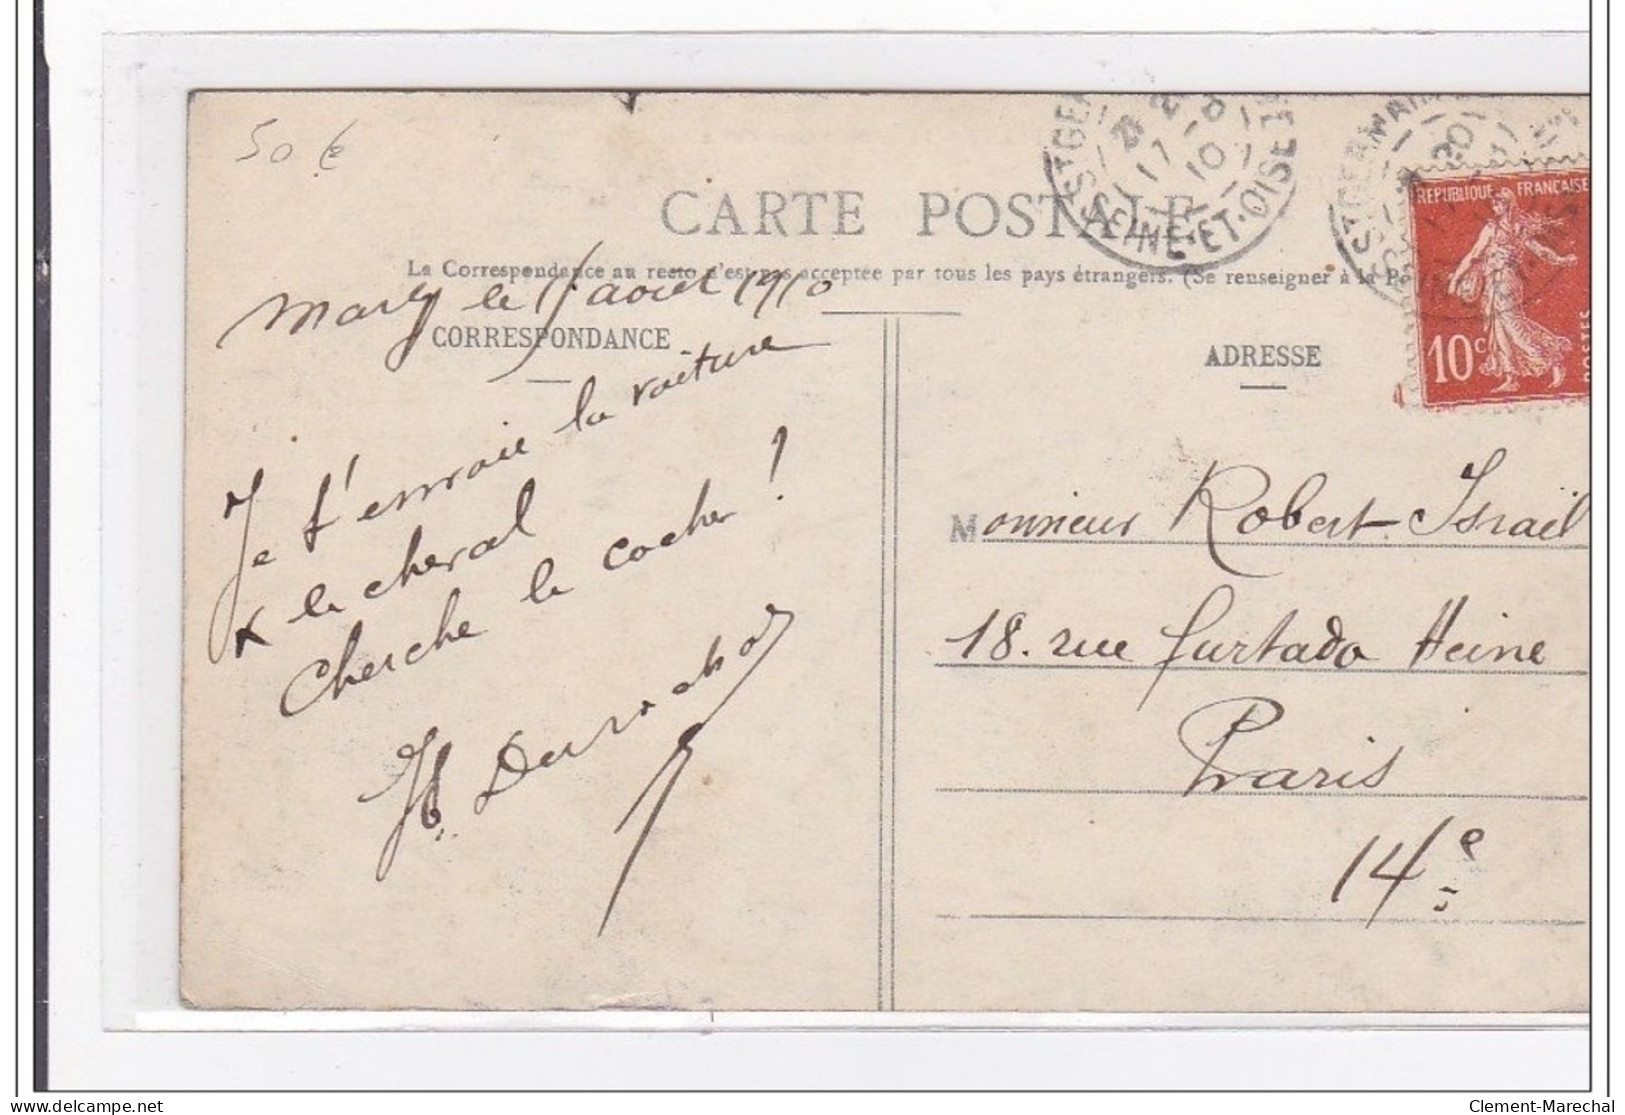 50 €
CARTE POSTALE
La Correspondance au recto n'est pas acceptée par tous les pays étrangers. (Se renseigner à la
CORRESPONDANCE
ADRESSE
le août 1910
Je t'envoie la voiture
le cheval
Cherche le cocher !
Monsieur Robert Israël
18. rue Furtado Heine
Paris
14e
ST GERMAIN
SEINE-ET-OISE
17
10
REPUBLIQUE FRANÇAISE
10c
POSTES
Clement-Marechal